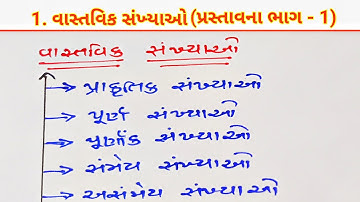 1. વાસ્તવિક સંખ્યાઓ (પ્રસ્તાવના ભાગ - 1)
વાસ્તવિક સંખ્યાઓ
પ્રાકૃતિક સંખ્યાઓ
પૂર્ણ સંખ્યાઓ
પૂર્ણાંક સંખ્યાઓ
સંમેય સંખ્યાઓ
અસંમેય સંખ્યાઓ